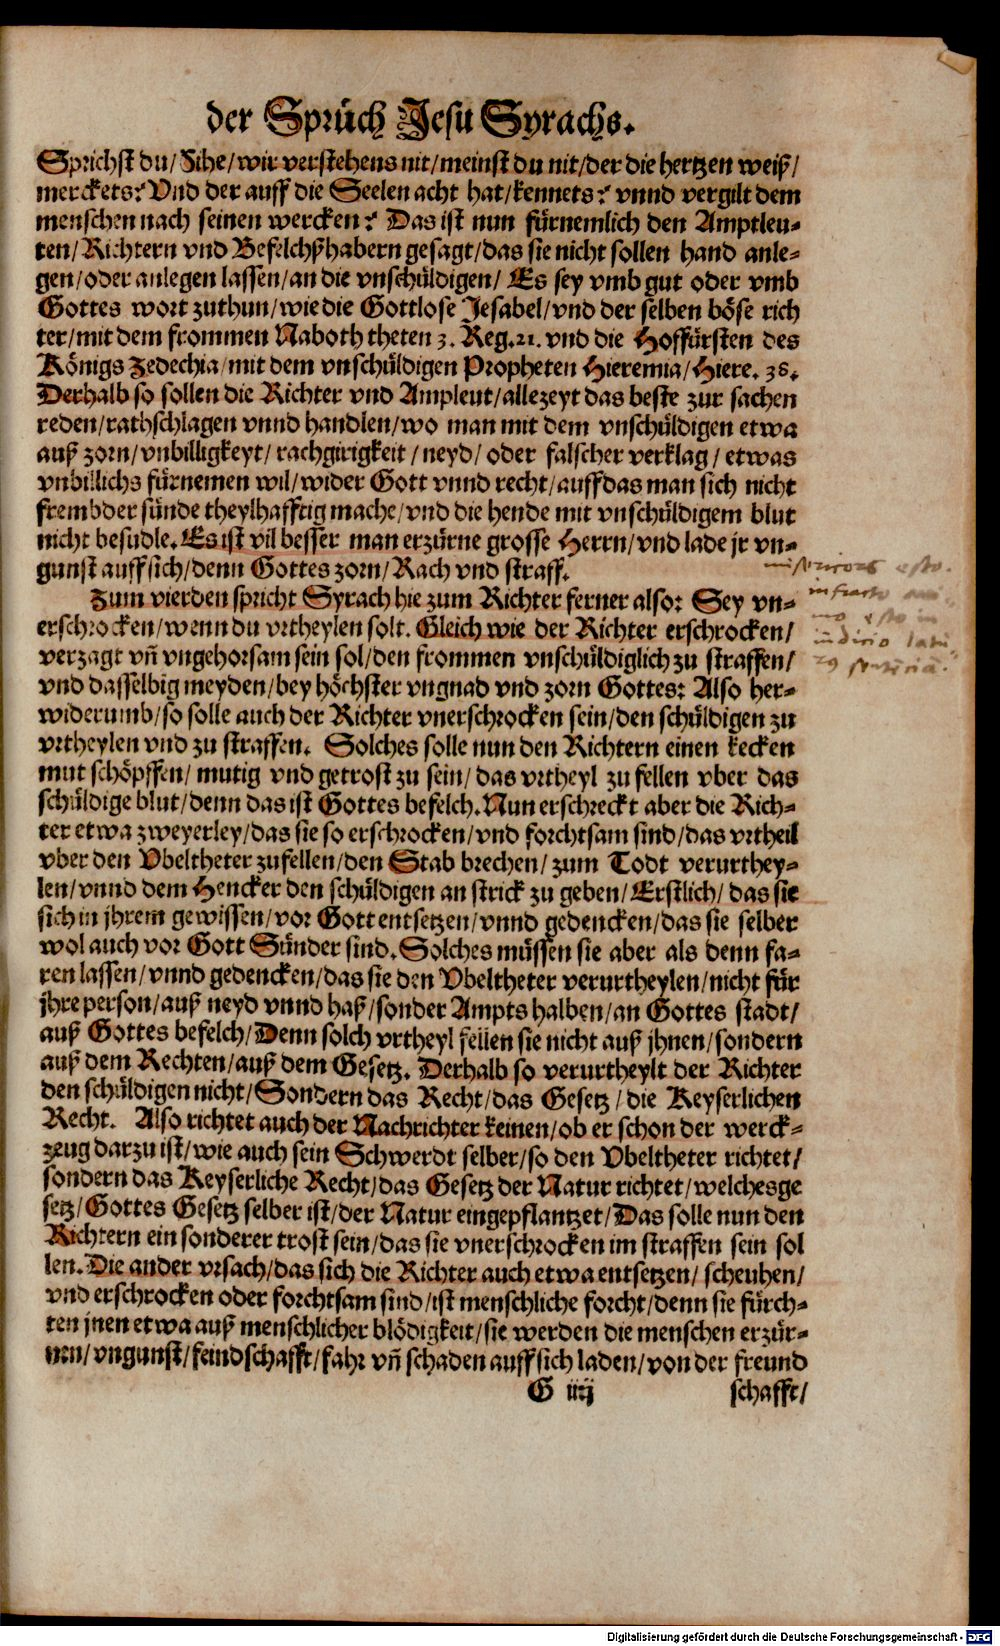 der Sprüch Jesu Syrachs.
Sprichst du/ Sihe/ wir verstehens nit/ meinst du nit/ der die hertzen weiß/
merckets? Vnd der auff die Seelen acht hat/ kennets? vnnd vergilt dem
menschen nach seinen wercken? Das ist nun fürnemlich den Amptleu-
ten/ Richtern vnd Befelchßhabern gesagt/ das sie nicht sollen hand anle-
gen/ oder anlegen lassen/ an die vnschüldigen/ Es sey vmb gut oder vmb
Gottes wort zuthun/ wie die Gottlose Jesabel/ vnd der selben böse rich
ter/ mit dem frommen Naboth theten 3. Reg. 21. vnd die Hoffürsten des
Königs Zedechia/ mit dem vnschüldigen Propheten Hieremia/ Hiere. 38.
Derhalb so sollen die Richter vnd Ampleut/ allezeyt das beste zur sachen
reden/ rathschlagen vnnd handlen/ wo man mit dem vnschüldigen etwa
auß zorn/ vnbilligkeyt/ rachgirigkeit/ neyd/ oder falscher verklag/ etwas
vnbillichs fürnemen wil/ wider Gott vnnd recht/ auff das man sich nicht
frembder sünde theylhafftig mache/ vnd die hende mit vnschüldigem blut
nicht besudle. Es ist vil besser man erzürne grosse Herrn/ vnd lade jr vn-
gunst auff sich/ denn Gottes zorn/ Rach vnd straff.
Zum vierden spricht Syrach hie zum Richter ferner also: Sey vn-
erschrocken/ wenn du vrtheylen solt. Gleich wie der Richter erschrocken/
verzagt vñ vngehorsam sein sol/ den frommen vnschüldiglich zu straffen/
vnd dasselbig meyden/ bey höchster vngnad vnd zorn Gottes: Also her-
widerumb/ so solle auch der Richter vnerschrocken sein/ den schüldigen zu
vrtheylen vnd zu straffen. Solches solle nun den Richtern einen kecken
mut schöpffen/ mutig vnd getrost zu sein/ das vrtheyl zu fellen vber das
schüldige blut/ denn das ist Gottes befelch. Nun erschreckt aber die Rich-
ter etwa zweyerley/ das sie so erschrocken/ vnd forchtsam sind/ das vrtheil
vber den Vbeltheter zufellen/ den Stab brechen/ zum Todt verurthey-
len/ vnnd dem Hencker den schüldigen an strick zu geben/ Erstlich/ das sie
sich in jhrem gewissen/ vor Gott entsetzen/ vnnd gedencken/ das sie selber
wol auch vor Gott Sünder sind. Solches müssen sie aber als denn fa-
ren lassen/ vnnd gedencken/ das sie den Vbeltheter verurtheylen/ nicht für
jhre person/ auß neyd vnnd haß/ sonder Ampts halben/ an Gottes stadt/
auß Gottes befelch/ Denn solch vrtheyl fellen sie nicht auß jhnen/ sondern
auß dem Rechten/ auß dem Gesetz. Derhalb so verurtheylt der Richter
den schüldigen nicht/ Sondern das Recht/ das Gesetz/ die Keyserlichen
Recht. Also richtet auch der Nachrichter keinen/ ob er schon der werck-
zeug darzu ist/ wie auch sein Schwerdt selber/ so den Vbeltheter richtet/
sondern das Keyserliche Recht/ das Gesetz der Natur richtet/ welches ge
setz/ Gottes Gesetz selber ist/ der Natur eingepflantzet/ Das solle nun den
Richtern ein sonderer trost sein/ das sie vnerschrocken im straffen sein sol
len. Die ander vrsach/ das sich die Richter auch etwa entsetzen/ scheuhen/
vnd erschrocken oder forchtsam sind/ ist menschliche forcht/ denn sie fürch-
ten jnen etwa auß menschlicher blödigkeit/ sie werden die menschen erzür-
nen/ vngunst/ feindschafft/ fahr vñ schaden auff sich laden/ von der freund
G iiij schafft/
esto.
infracto ani-
mo esto in
Digitalisierung gefördert durch die Deutsche Forschungsgemeinschaft - DFG